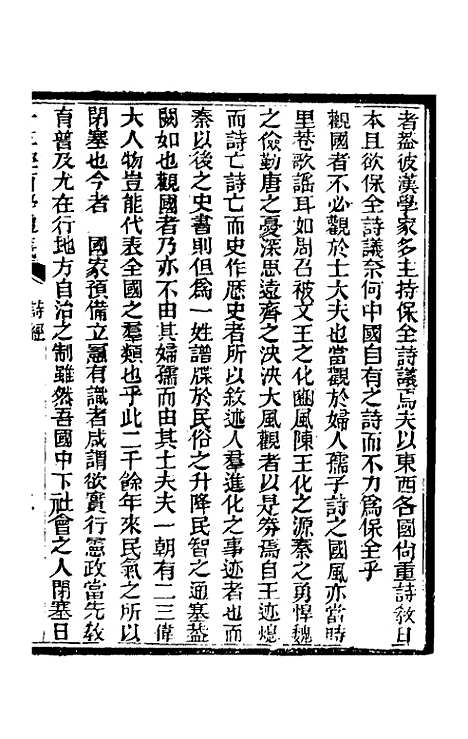 者蓋彼漢學家多主持保全詩議焉夫以東西各國尙重詩敎日
本且欲保全詩議奈何中國自有之詩而不力爲保全乎
觀國者不必觀於士大夫也當觀於婦人孺子詩之國風亦當時
里巷歌謠耳如周召被文王之化豳風陳王化之源秦之勇悍魏
之儉勤唐之憂深思遠齊之泱泱大風觀者以是覘焉自王迹熄
而詩亡詩亡而史作歷史者所以敘述人羣進化之事迹者也而
秦以後之史書則但爲一姓譜牒於民俗之升降民智之通塞蓋
闕如也觀國者乃亦不由其婦孺而由其士夫夫一朝有一二三偉
大人物豈能代表全國之羣類也乎此二千餘年來民氣之所以
閉塞也今者 國家預備立憲有識者咸謂欲實行憲政當先敎
育普及尤在行地方自治之制雖然吾國中下社會之人閉塞日
詩經